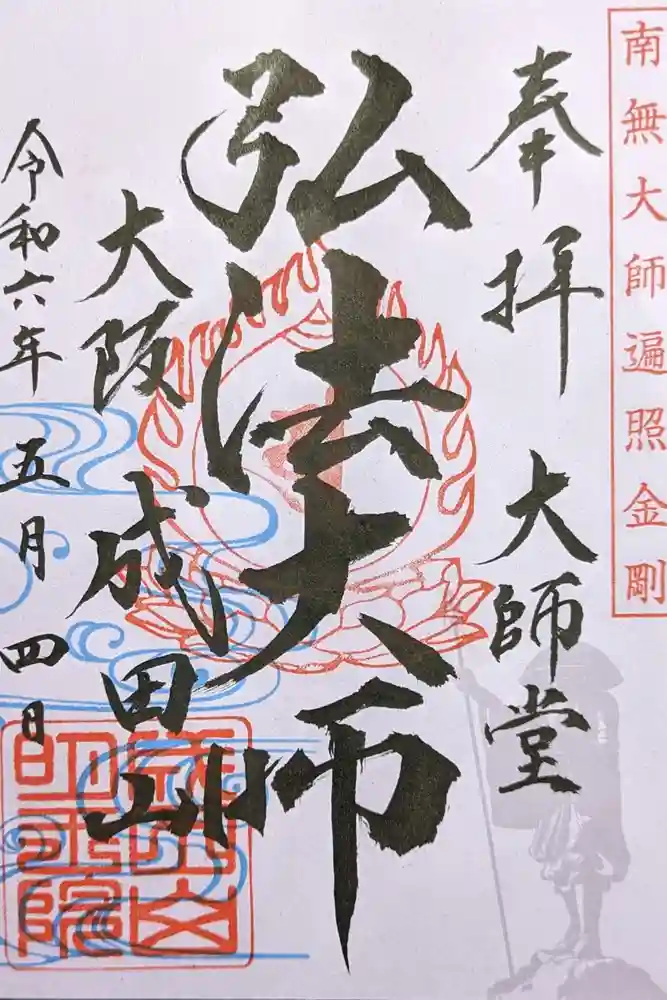 南無大師遍照金剛
奉拝 大師堂
弘法大師
大阪 成田山
令和六年 五月 四日
成田山
明王院